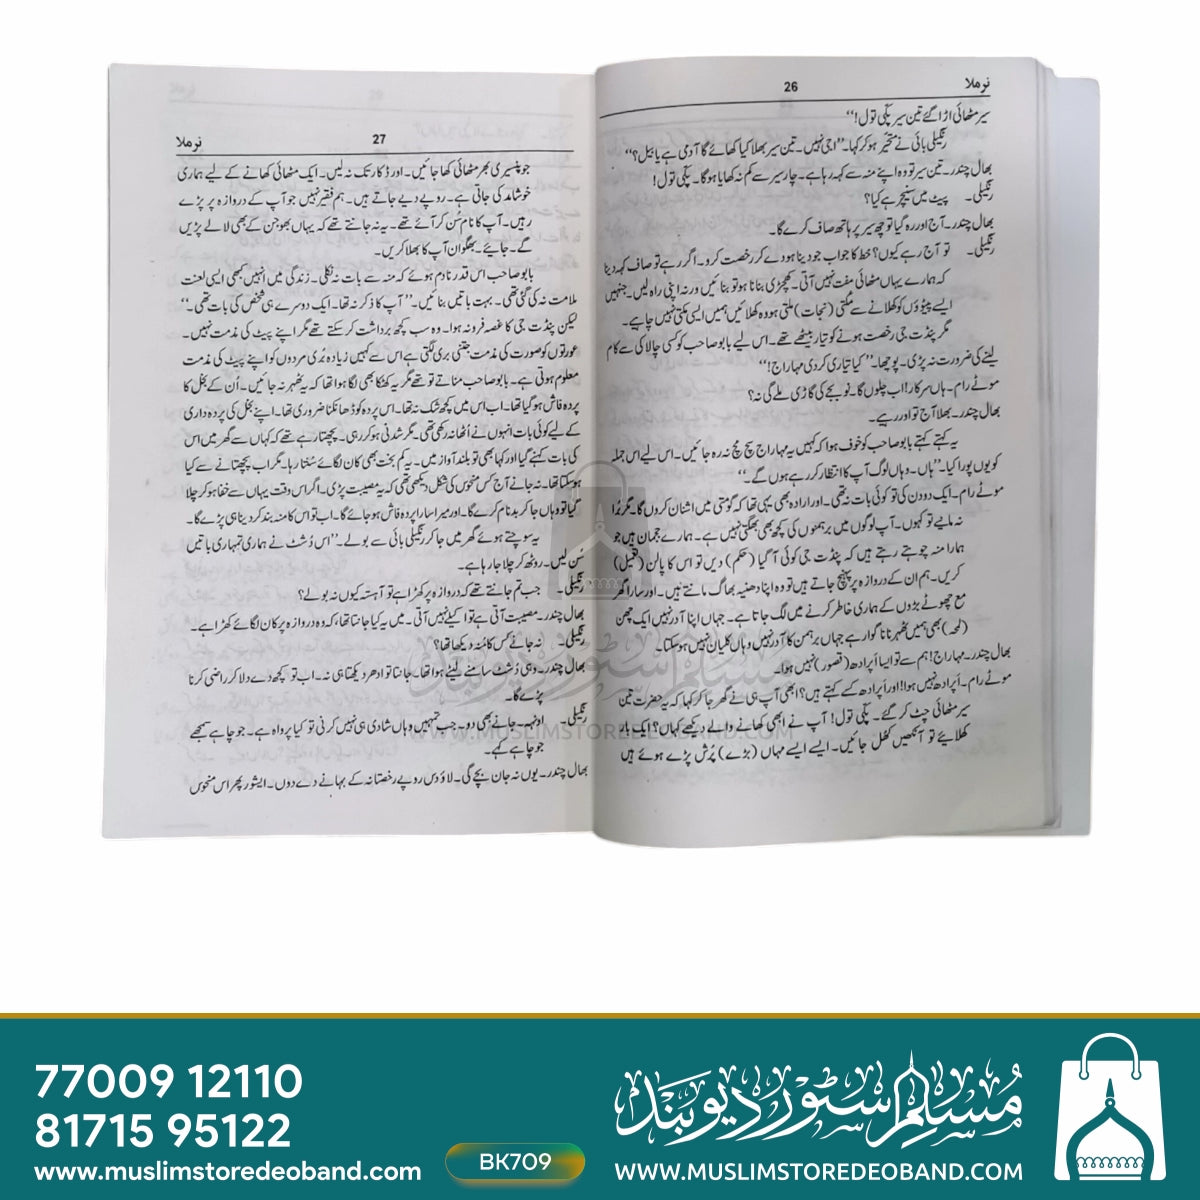 نرملا
26
سیر مٹھائی اڑا گئے تین سیر پکّی تول!‘‘
رنگیلی بائی نے متحیر ہو کر کہا۔ ’’اجی نہیں۔ تین سیر بھلا کیا کھائے گا آدمی ہے یا بیل؟‘‘
بھال چندر۔ تین سیر تو وہ اپنے منہ سے کہہ رہا ہے۔ چار سیر سے کم نہ کھایا ہوگا۔ پکّی تول!
رنگیلی۔ پیٹ میں سنیچر ہے کیا؟
بھال چندر۔ آج اور رہ گیا تو چھ سیر پر ہاتھ صاف کرے گا۔
رنگیلی۔ تو آج رہے کیوں؟ خط کا جواب جو دینا ہو دے کر رخصت کرو۔ اگر رہے تو صاف کہہ دینا
کہ ہمارے یہاں مٹھائی مفت نہیں آتی۔ کھچڑی بنانا ہو تو بنائیں ورنہ اپنی راہ لیں۔ جنہیں
ایسے پیٹوؤں کو کھلانے سے مُکتی (نجات) ملتی ہو وہ کھلائیں ہمیں ایسی مکتی نہیں چاہیے۔
مگر پنڈت جی رخصت ہونے کو تیار بیٹھے تھے۔ اس لیے بابو صاحب کو کسی چالاکی سے کام
لینے کی ضرورت نہ پڑی۔ پوچھا۔ ’’کیا تیاری کر دی مہاراج!‘‘
موٹے رام۔ ہاں سرکار اب چلوں گا۔ نو بجے کی گاڑی ملے گی نہ؟
بھال چندر۔ بھلا آج تو اور رہیے۔
یہ کہتے کہتے بابو صاحب کو خوف ہوا کہ کہیں یہ مہاراج سچ مچ نہ رہ جائیں۔ اس لیے اس جملہ
کو یوں پورا کیا۔ ’’ہاں۔ وہاں لوگ آپ کا انتظار کر رہے ہوں گے۔‘‘
موٹے رام۔ ایک دو دن کی تو کوئی بات نہ تھی۔ اور ارادہ بھی یہی تھا کہ گومتی میں اشنان کروں گا۔ مگر بُرا
نہ مانیے تو کہوں۔ آپ لوگوں میں برہمنوں کی کچھ بھی بھگتی نہیں ہے۔ ہمارے ججمان ہیں جو
ہمارا منہ جوہتے رہتے ہیں کہ پنڈت جی کوئی آگیا (حکم) دیں تو اس کا پالن (تعمیل)
کریں۔ ہم ان کے دروازہ پر پہنچ جاتے ہیں تو وہ اپنا دھنیہ بھاگ مانتے ہیں۔ اور سارا گھر
مع چھوٹے بڑوں کے ہماری خاطر کرنے میں لگ جاتا ہے۔ جہاں اپنا آدر نہیں ایک چھن
(لمحہ) بھی ہمیں ٹھہرنا ناگوار ہے جہاں برہمن کا آدر نہیں وہاں کلیان نہیں ہو سکتا۔
بھال چندر۔ مہاراج! ہم سے تو ایسا اُپرادھ (قصور) نہیں ہوا۔
موٹے رام۔ اُپرادھ نہیں ہوا! اور اُپرادھ کسے کہتے ہیں؟ ابھی آپ ہی نے گھر جا کر کہا کہ یہ حضرت تین
سیر مٹھائی چٹ کر گئے۔ پکّی تول! آپ نے ابھی کھانے والے دیکھے کہاں؟ ایک بار
کھلائیے تو آنکھیں کھل جائیں۔ ایسے ایسے مہاں (بڑے) پُرش پڑے ہوئے ہیں
27
نرملا
جو پنسیری بھر مٹھائی کھا جائیں۔ اور ڈکار تک نہ لیں۔ ایک مٹھائی کھانے کے لیے ہماری
خوشامد کی جاتی ہے۔ روپے دیے جاتے ہیں۔ ہم فقیر نہیں جو آپ کے دروازہ پر پڑے
رہیں۔ آپ کا نام سُن کر آئے تھے۔ یہ نہ جانتے تھے کہ یہاں بھوجن کے بھی لالے پڑیں
گے۔ جائیے۔ بھگوان آپ کا بھلا کریں۔
بابو صاحب اس قدر نادم ہوئے کہ منہ سے بات نہ نکلی۔ زندگی میں انہیں کبھی ایسی لعنت
ملامت نہ کی گئی تھی۔ بہت باتیں بنائیں۔ ’’آپ کا ذکر نہ تھا۔ ایک دوسرے ہی شخص کی بات تھی۔‘‘
لیکن پنڈت جی کا غصہ فرو نہ ہوا۔ وہ سب کچھ برداشت کر سکتے تھے مگر اپنے پیٹ کی مذمت نہیں۔
عورتوں کو صورت کی مذمت جتنی بری لگتی ہے اس سے کہیں زیادہ بُری مردوں کو اپنے پیٹ کی مذمت
معلوم ہوتی ہے۔ بابو صاحب مناتے تو تھے مگر یہ کھٹکا بھی لگا ہوا تھا کہ یہ ٹھہر نہ جائیں۔ اُن کے بخل کا
پردہ فاش ہو گیا تھا۔ اب اس میں کچھ شک نہ تھا۔ اس پردہ کو ڈھانکنا ضروری تھا۔ اپنے بخل کی پردہ داری
کے لیے کوئی بات انہوں نے اُٹھا نہ رکھی تھی۔ مگر شدنی ہو کر رہی۔ پچھتا رہے تھے کہ کہاں سے گھر میں اس
کی بات کہنے گیا اور کہا بھی تو بلند آواز میں۔ یہ کم بخت بھی کان لگائے سُنتا رہا۔ مگر اب پچھتانے سے کیا
ہو سکتا تھا۔ نہ جانے آج کس منحوس کی شکل دیکھی تھی کہ یہ مصیبت پڑی۔ اگر اس وقت یہاں سے خفا ہو کر چلا
گیا تو وہاں جا کر بدنام کرے گا۔ اور میرا سارا پردہ فاش ہو جائے گا۔ اب تو اس کا منہ بند کر دینا ہی پڑے گا۔
یہ سوچتے ہوئے گھر میں جا کر رنگیلی بائی سے بولے۔ ’’اس دُشٹ نے ہماری تمہاری باتیں
سُن لیں۔ روٹھ کر چلا جا رہا ہے۔
رنگیلی۔ جب تم جانتے تھے کہ دروازہ پر کھڑا ہے تو آہستہ کیوں نہ بولے؟
بھال چندر۔ مصیبت آتی ہے تو اکیلے نہیں آتی۔ میں یہ کیا جانتا تھا، کہ وہ دروازہ پر کان لگائے کھڑا ہے۔
رنگیلی۔ نہ جانے کس کا مُنہ دیکھا تھا؟
بھال چندر۔ وہی دُشٹ سامنے لیٹے ہوا تھا۔ جانتا تو ادھر دیکھتا ہی نہ۔ اب تو کچھ دے دلا کر راضی کرنا
پڑے گا۔
رنگیلی۔ اونہہ۔ جانے بھی دو۔ جب تمہیں وہاں شادی ہی نہیں کرنی تو کیا پرواہ ہے۔ جو چاہے سمجھے
جو چاہے کہے۔
بھال چندر۔ یوں نہ جان بچے گی۔ لاؤ دس روپے رخصتانہ کے بہانے دے دوں۔ ایشور پھر اس منحوس
مسلم سٹور دیوبند
WWW.MUSLIMSTOREDEOBAND.COM
77009 12110
81715 95122
www.muslimstoredeoband.com
BK709
مسلم سٹور دیوبند
WWW.MUSLIMSTOREDEOBAND.COM